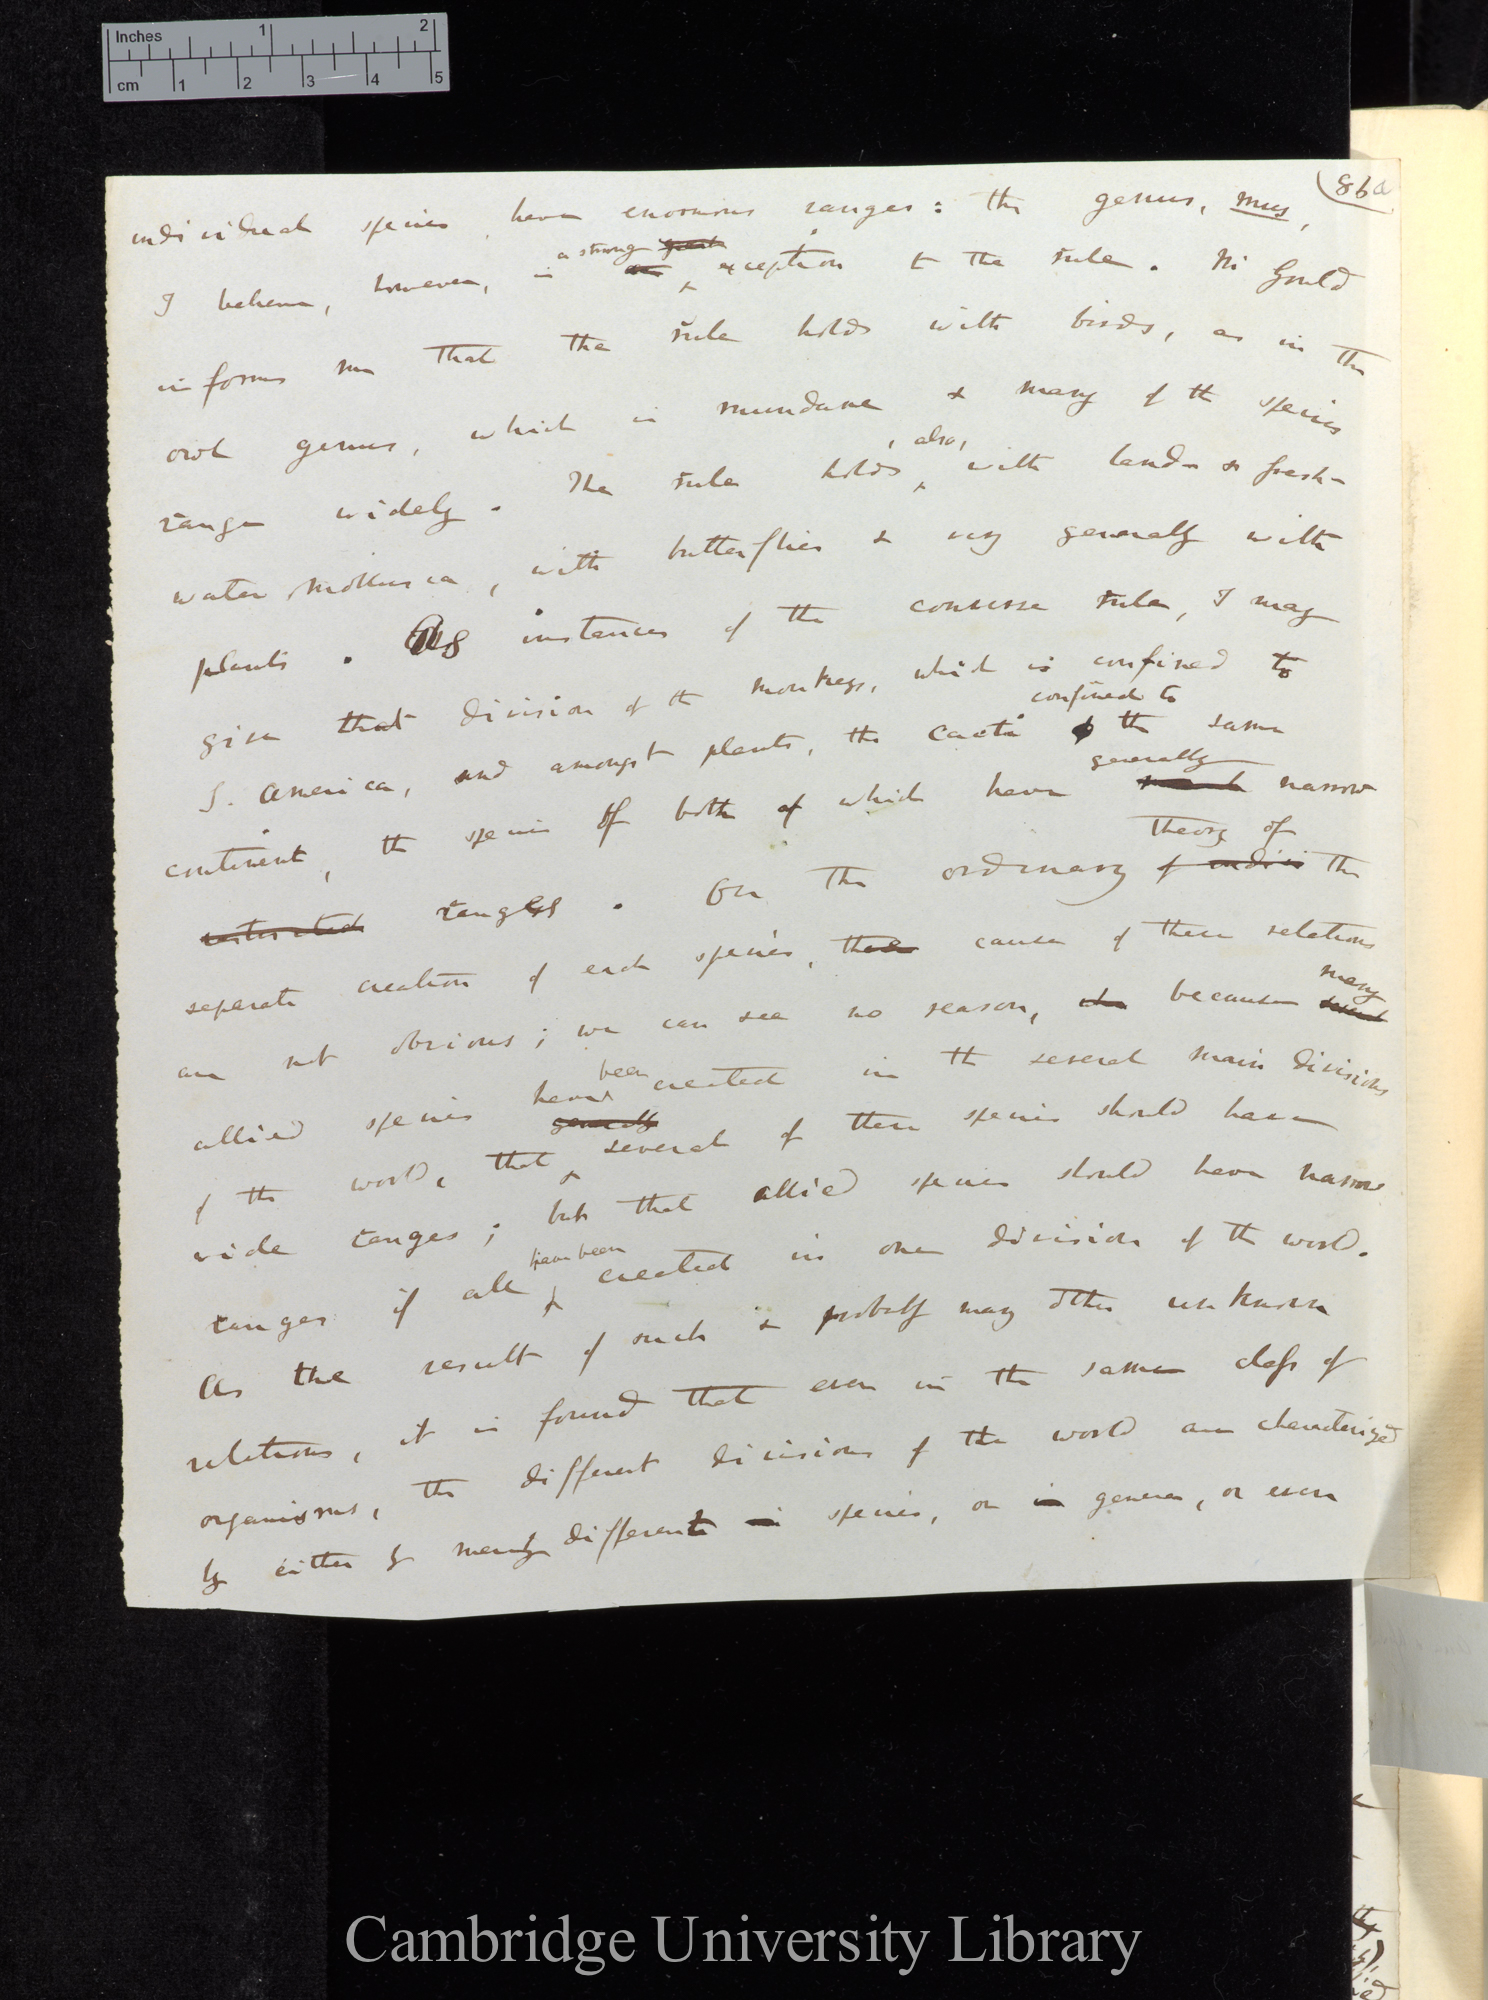 Inches 1 2
cm 1 2 3 4 5
86a
individual species have enormous ranges: the genus, mus,
I believe, however, is a strong great an exception to the rule. Mr Gould
informs me that the rule holds with birds, as in the
owl genus, which is mundane & many of the species
range widely. The rule holds, also, with land- & fresh-
water mollusca, with butterflies & very generally with
plants. As instances of the converse rule, I may
give that division of the monkeys, which is confined to
S. America, and amongst plants, the cacti confined to the same
continent, the species of both of which have generally narrow
restricted ranges. On the ordinary theory of the
separate creation of each species, the cause of these relations
are not obvious; we can see no reason, because many
allied species have been created in the several main divisions
of the world, that generally several of these species should have
wide ranges; but that allied species should have narrow
ranges if all have been created in one division of the world.
As the result of such & probably many other unknown
relations, it is found that even in the same class of
organisms, the different divisions of the world are characterized
by either by merely different in species, or in genera, or even
Cambridge University Library